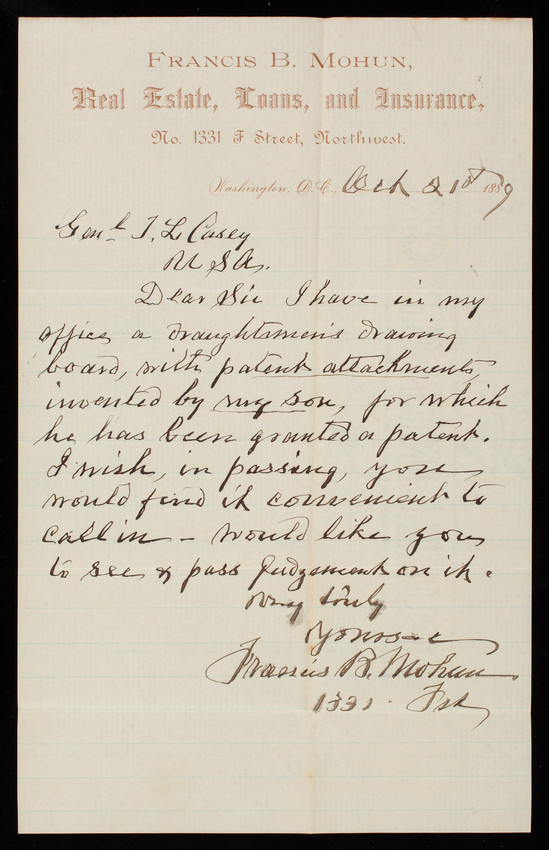 FRANCIS B. MOHUN,
Real Estate, Loans, and Insurance,
No. 1331 F Street, Northwest.
Washington, D.C., Oct 21st 1889
Genl T. L. Casey
U S A.
Dear Sir I have in my
office a draughtsmen's drawing
board, with patent attachments,
invented by my son, for which
he has been granted a patent.
I wish, in passing, you
would find it convenient to
call in - would like you
to see & pass Judgement on it.
Very truly
Yours
Francis B. Mohun
1331 F St